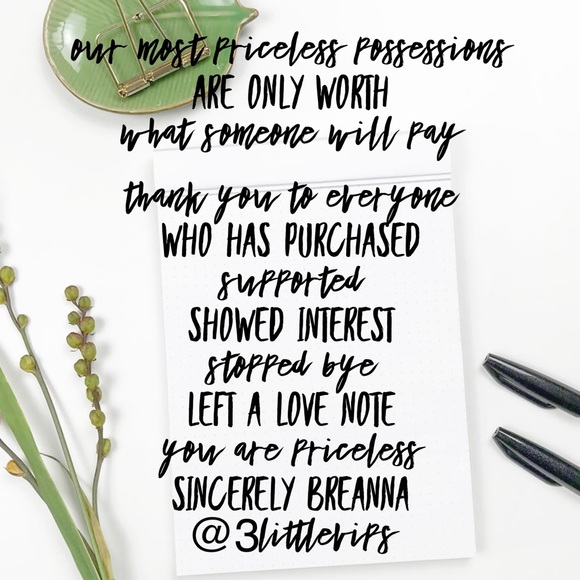 our most priceless possessions
ARE ONLY WORTH
what someone will pay
thank you to everyone
WHO HAS PURCHASED
supported
SHOWED INTEREST
stopped bye
LEFT A LOVE NOTE
you are priceless
SINCERELY BREANNA
@3littlevips